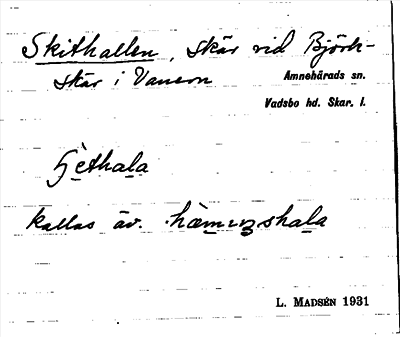 Skithallen, skär vid Björk-
skär i Vänern
Amnehärads sn.
Vadsbo hd. Skar. l.
kallas äv.
L. MADSÉN 1931